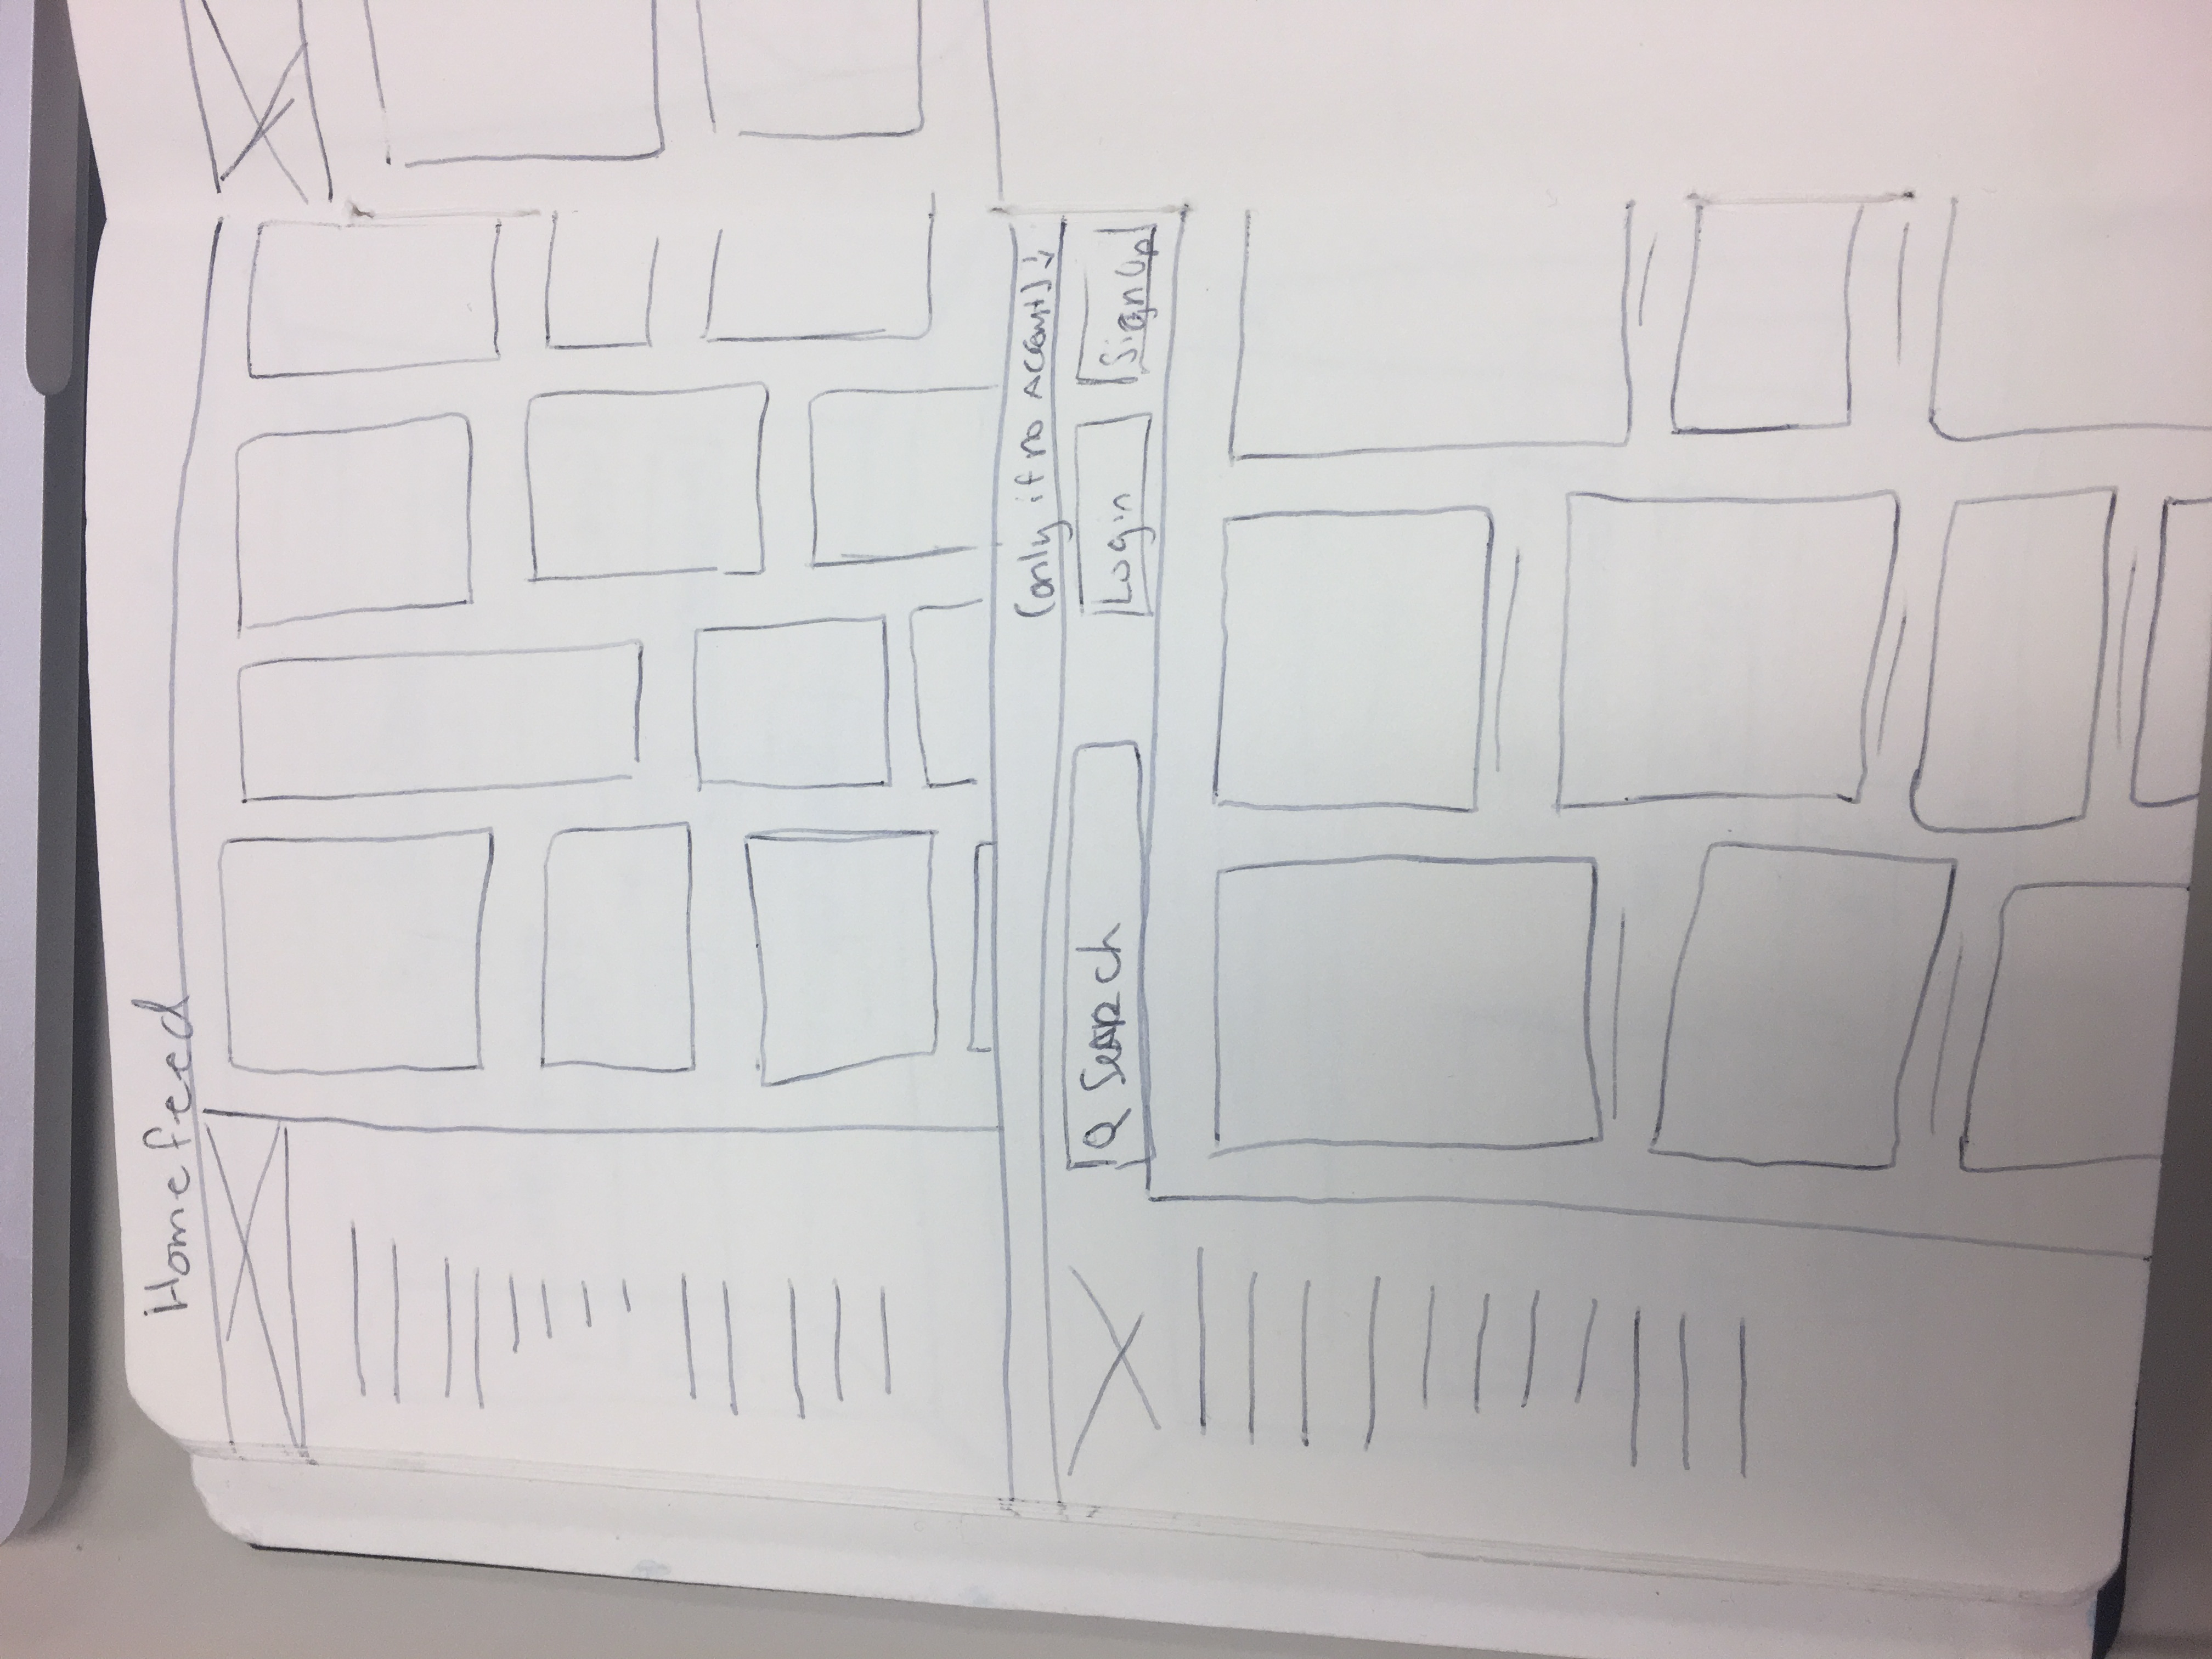 Homefeed
(only if no Account) ↓
Search
Login
Sign Up